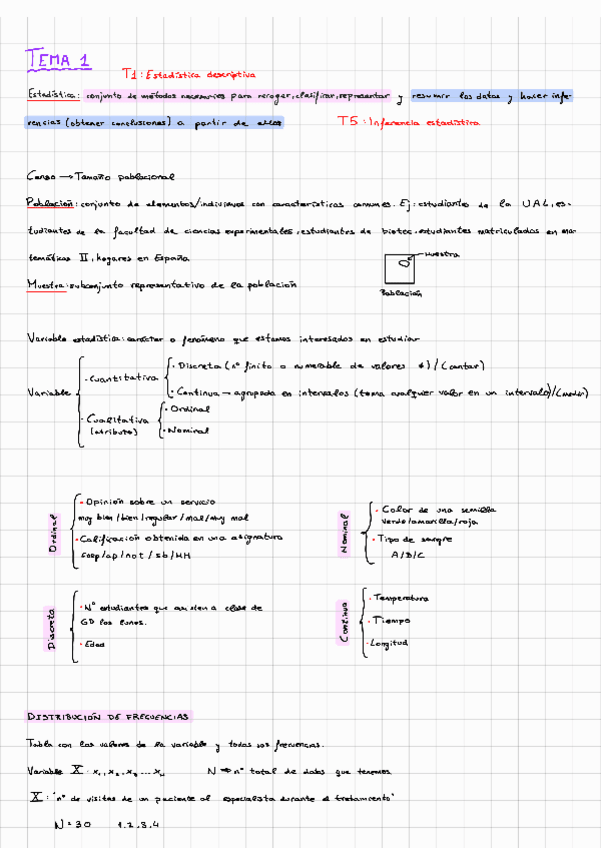 TEMA 1
T1: Estadística descriptiva
Estadística: conjunto de métodos necesarios para recoger, clasificar, representar y resumir los datos y hacer infe-
rencias (obtener conclusiones) a partir de ellos T5: Inferencia estadística
Censo → Tamaño poblacional
Población: conjunto de elementos/individuos con características comunes. Ej: estudiantes de la UAL, es-
tudiantes de la facultad de ciencias experimentales, estudiantes de biotec, estudiantes matriculados en ma-
temáticas II, hogares en España
Muestra
Muestra: subconjunto representativo de la población
Población
Variable estadística: carácter o fenómeno que estamos interesados en estudiar
Variable
· Cuantitativa
· Discreta (nº finito o numerable de valores ≠) / (contar)
· Continua → agrupada en intervalos (toma cualquier valor en un intervalo) / (medir)
· Cualitativa
(atributo)
· Ordinal
· Nominal
Ordinal
· Opinión sobre un servicio
muy bien / bien / regular / mal / muy mal
· Calificación obtenida en una asignatura
susp / ap / not / sb / MH
Nominal
· Color de una semilla
verde / amarilla / roja
· Tipo de sangre
A / B / C
Discreta
· Nº estudiantes que asisten a clase de
GD los lunes.
· Edad
Continua
· Temperatura
· Tiempo
· Longitud
DISTRIBUCIÓN DE FRECUENCIAS
Tabla con los valores de la variable y todas sus frecuencias.
Variable X: x₁, x₂, x₃ ... N → nº total de datos que tenemos
X: "nº de visitas de un paciente al especialista durante el tratamiento"
N = 30 1, 2, 3, 4